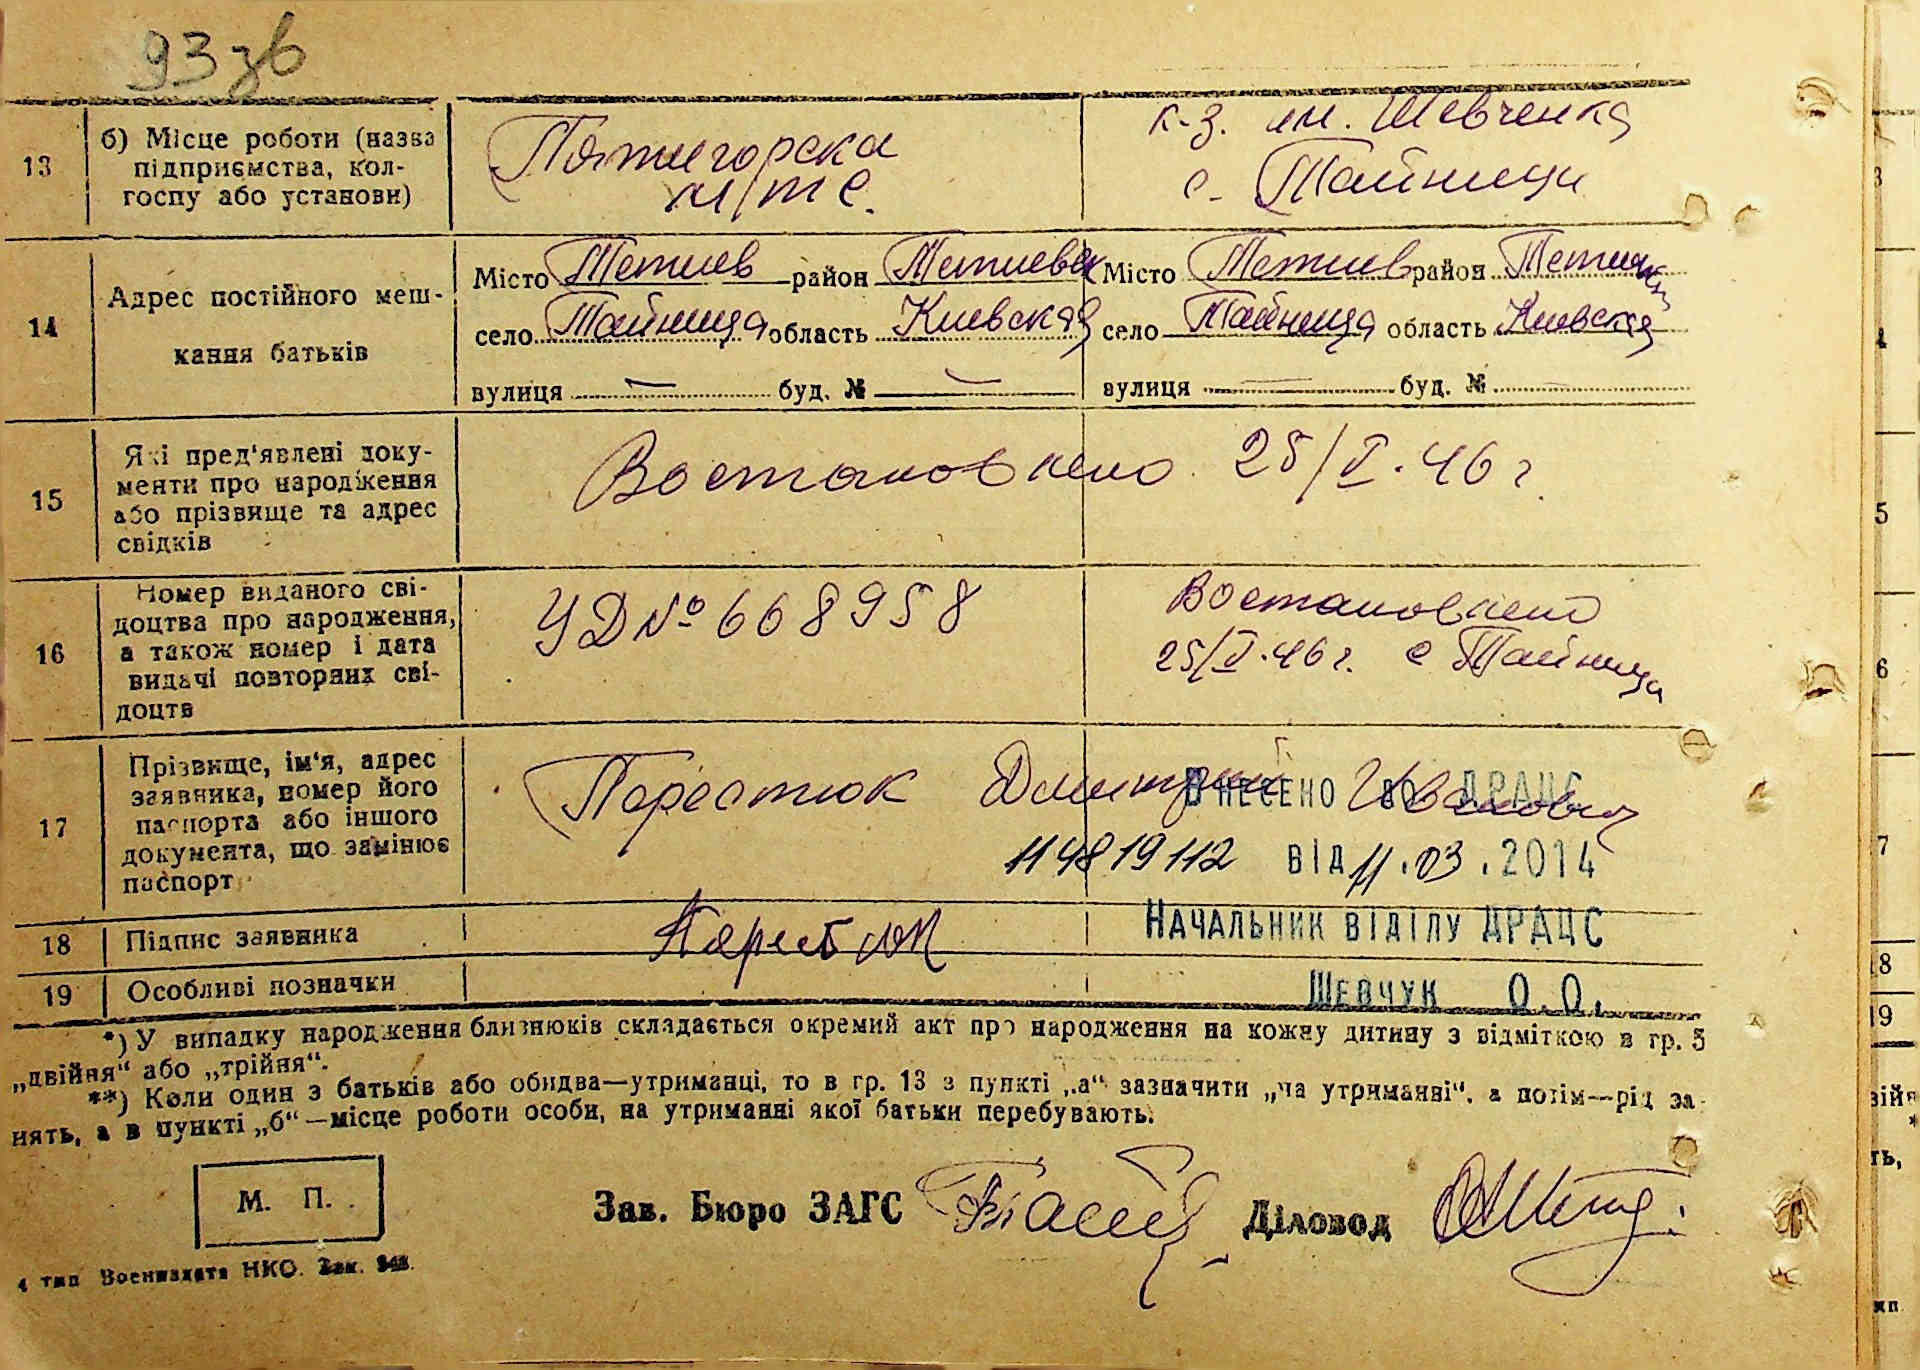 93 зв
13
б) Місце роботи (назва
підприємства, кол-
госпу або установи)
Пятигорска
м/т с.
к-з. им. Шевченка
с. Тайници
14
Адрес постійного меш-
кання батьків
Місто Тетиев район Тетиевск
село Тайница область Киевская
вулиця — буд. № —
Місто Тетиев район Тетиевск
село Тайница область Киевская
вулиця — буд. №
15
Які пред'явлені доку-
менти про народження
або прізвище та адрес
свідків
Востановлено 25/I. 46 г.
16
Номер виданого сві-
доцтва про народження,
а також номер і дата
видачі повторних сві-
доцтв
УД № 668958
Востановлено
25/I. 46 г. с Тайница
17
Прізвище, ім'я, адрес
заявника, номер його
паспорта або іншого
документа, що замінює
паспорт
Перестюк Дмитрий Иванович
Внесено до ДРАЦС
114819112 від 11.03.2014
18
Підпис заявника
Начальник відділу ДРАЦС
19
Особливі позначки
Шевчук О.О.
*) У випадку народження близнюків складається окремий акт про народження на кожну дитину з відміткою в гр. 5
„двійня“ або „трійня“.
**) Коли один з батьків або обидва—утриманці, то в гр. 13 в пункті „а“ зазначити „на утриманні“, а потім—рід за-
нять, а в пункті „б“—місце роботи особи, на утриманні якої батьки перебувають.
М. П.
Зав. Бюро ЗАГС
Діловод
4 тип Воениздата НКО. Зам.